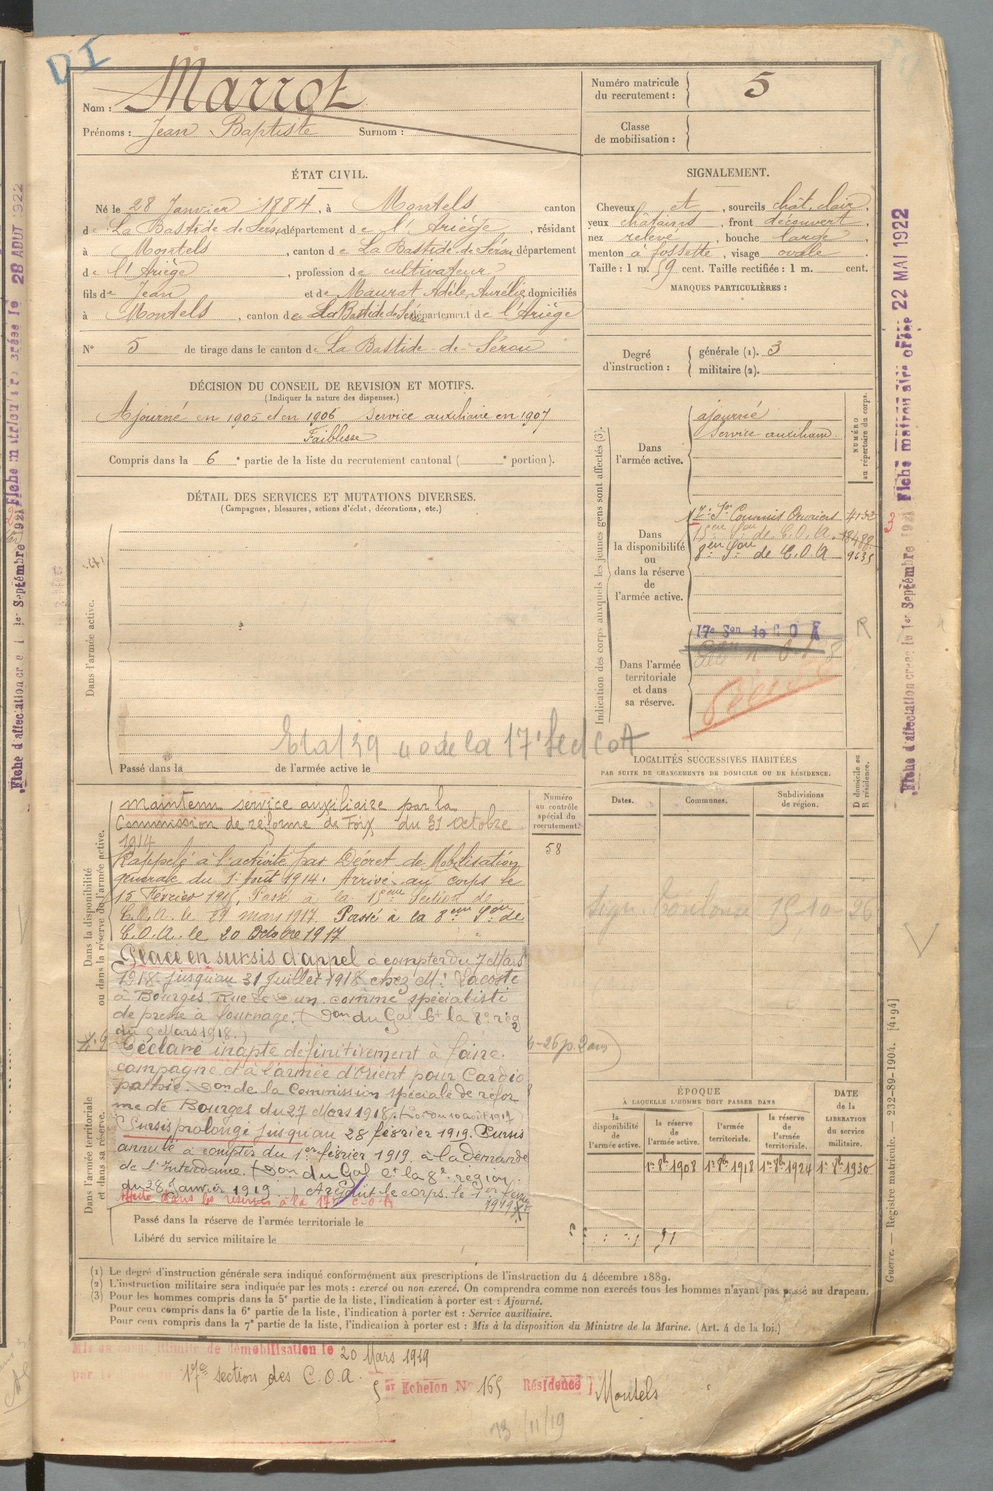 DI
Nom : Marrot
Prénoms : Jean Baptiste Surnom :
Numéro matricule du recrutement : 5
Classe de mobilisation :
ÉTAT CIVIL.
Né le 28 Janvier 1884, à Montels canton
de La Bastide de Sérou département de l'Ariège, résidant
à Montels, canton de La Bastide-de-Sérou département
de l'Ariège, profession de cultivateur
fils de Jean et de Maurat Adèle, Aurélie domiciliés
à Montels, canton de La Bastide de Sérou département de l'Ariège
N° 5 de tirage dans le canton de La Bastide-de-Sérou
SIGNALEMENT.
Cheveux et, sourcils chât. clair,
yeux châtains, front découvert,
nez relevé, bouche large,
menton à fossette, visage ovale.
Taille : 1 m. 59 cent. Taille rectifiée : 1 m. cent.
MARQUES PARTICULIÈRES :
Degré d'instruction :
générale (1). 3
militaire (2).
DÉCISION DU CONSEIL DE REVISION ET MOTIFS.
(Indiquer la nature des dispenses.)
Ajourné en 1905 et en 1906 Service auxiliaire en 1907
Faiblesse
Compris dans la 6e partie de la liste du recrutement cantonal ( e portion).
DÉTAIL DES SERVICES ET MUTATIONS DIVERSES.
(Campagnes, blessures, actions d'éclat, décorations, etc.)
Dans l'armée active.
Etat 39 40 de la 17e Sect COA
Passé dans la de l'armée active le
Indication des corps auxquels les jeunes gens sont affectés (3).
NUMÉRO au répertoire du corps.
Dans l'armée active.
ajourné
Service auxiliaire.
Dans la disponibilité ou dans la réserve de l'armée active.
Commis Ouvriers
15eme Son de C.O.A.
8eme Son de C.O.A 9635
Dans l'armée territoriale et dans sa réserve.
17e Son de COA
R
LOCALITÉS SUCCESSIVES HABITÉES
PAR SUITE DE CHANGEMENTS DE DOMICILE OU DE RÉSIDENCE.
D domicile ou R résidence.
Dates. Communes. Subdivisions de région.
Toulouse 15-10-26
Dans la disponibilité ou dans la réserve de l'armée active.
Numéro au contrôle spécial du recrutement.
58
Maintenu service auxiliaire par la
Commission de réforme de Foix du 31 octobre
1914
Rappelé à l'activité par Décret de Mobilisation
générale du 1er Août 1914. Arrivé au corps le
15 Février 191 , Passé à la 15eme Section de
C.O.A. le mars 1917 Passé à la 8eme Son de
C.O.A. le 20 Octobre 1917
Placé en sursis d'appel à compter du 7 Mars
1918 jusqu'au 31 Juillet 1918 chez M. Lacoste
à Bourges Rue comme spécialiste
de presse à fourrage. ( Don du Gal Ct la 8e rég
du 9 Mars 1918.)
Déclaré inapte définitivement à faire
campagne d'à l'armée d'Orient pour Cardio
pathie. Don de la Commission spéciale de réfor
me de Bourges du 27 Mars 1918.
Sursis prolongé jusqu'au 28 février 1919. Sursis
annulé à compter du 1er février 1919 à la demande
de l'Intendance. (Don du Gal Ct la 8e région
du 28 Janvier 1919. le corps le 1er
1919
Affecté dans les réserves à la 17e C.O.A
Dans l'armée territoriale et dans sa réserve.
Passé dans la réserve de l'armée territoriale le
Libéré du service militaire le
ÉPOQUE
À LAQUELLE L'HOMME DOIT PASSER DANS
la disponibilité de l'armée active.
la réserve de l'armée active.
l'armée territoriale.
la réserve de l'armée territoriale.
DATE de la LIBÉRATION du service militaire.
1er 8bre 1908 1er 8bre 1918 1er 8bre 1924 1er 8bre 1930
(1) Le degré d'instruction générale sera indiqué conformément aux prescriptions de l'instruction du 4 décembre 1889.
(2) L'instruction militaire sera indiquée par les mots : exercé ou non exercé. On comprendra comme non exercés tous les hommes n'ayant pas passé au drapeau.
(3) Pour les hommes compris dans la 5e partie de la liste, l'indication à porter est : Ajourné.
Pour ceux compris dans la 6e partie de la liste, l'indication à porter est : Service auxiliaire.
Pour ceux compris dans la 7e partie de la liste, l'indication à porter est : Mis à la disposition du Ministre de la Marine. (Art. 4 de la loi.)
Mis en congé illimité de démobilisation le 20 Mars 1919
par 17e section des C.O.A.
5er Echelon N° 165 Résidence Montels
13/11/19
Guerre. — Registre matricule. — 232-89-1904. [4194]
Fiche matriculaire créée le 22 MAI 1922
Fiche d'affectation créée le 1er Septembre 1921
Fiche matriculaire créée le 28 AOUT 1922
Fiche d'affectation créée le 1er Septembre 1921